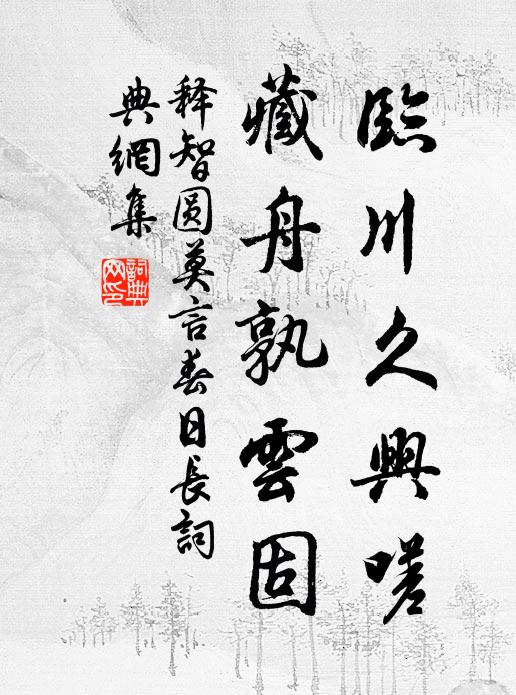 臨川久興嗟
藏舟孰雲固
释智圓莫言春日長詞
典網集
詞典網印